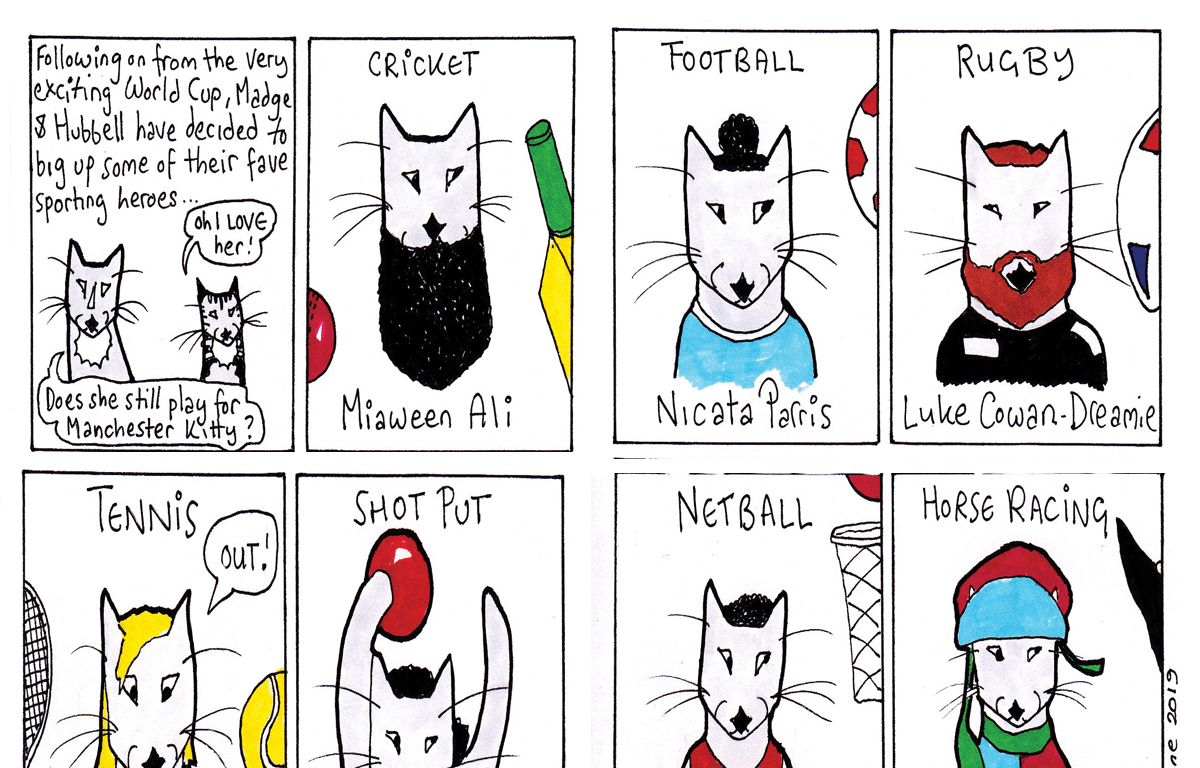 Following on from the very
exciting World Cup, Madge
& Hubbell have decided to
big up some of their fave
sporting heroes...
oh I LOVE
her!
Does she still play for
Manchester Kitty?
CRICKET
Miaween Ali
FOOTBALL
Nicata Parris
RUGBY
Luke Cowan-Dreamie
TENNIS
OUT!
SHOT PUT
NETBALL
HORSE RACING
ne 2019